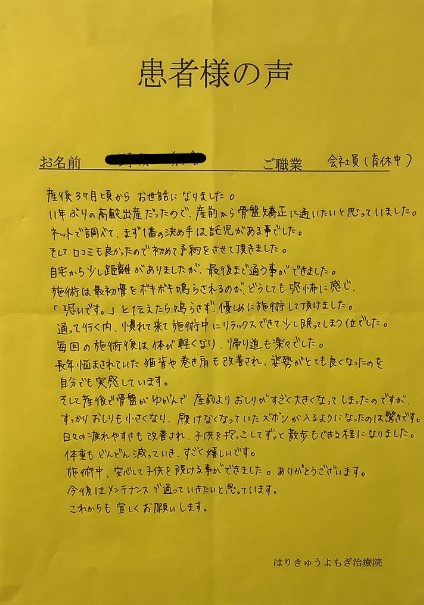 患者様の声
お名前 ご職業 会社員(育休中)
産後3ヶ月頃からお世話になりました。
11年ぶりの高齢出産だったので、産前から骨盤矯正に通いたいと思っていました。
ネットで調べて、まず1番の決め手は託児がある事でした。
そして口コミも良かったので初めて予約をさせて頂きました。
自宅から少し距離がありましたが、最後まで通う事ができました。
施術は最初骨をボキボキ鳴らされるのが、どうしても恐怖に感じ、
「恐いです。」と伝えたら鳴らさず、優しめに施術して頂けました。
通って行く内、慣れて来て施術中にリラックスできて少し眠ってしまう位でした。
毎回の施術後は体が軽くなり、帰り道も楽々でした。
長年悩まされていた猫背や巻き肩も改善され、姿勢がとても良くなったのを
自分でも実感しています。
そして産後で骨盤がゆがんで産前よりおしりがすごく大きくなってしまったのですが、
すっかりおしりも小さくなり、履けなくなっていたズボンが入るようになったのは驚きです。
日々の疲れやすさも改善され、子供を抱っこしてずっと散歩もできる程になりました。
体重もどんどん減っていき、すごく嬉しいです。
施術中、安心して子供を預ける事ができました。ありがとうございます。
今後はメンテナンスで通っていきたいと思っています。
これからも宜しくお願いします。
はりきゅうよもぎ治療院